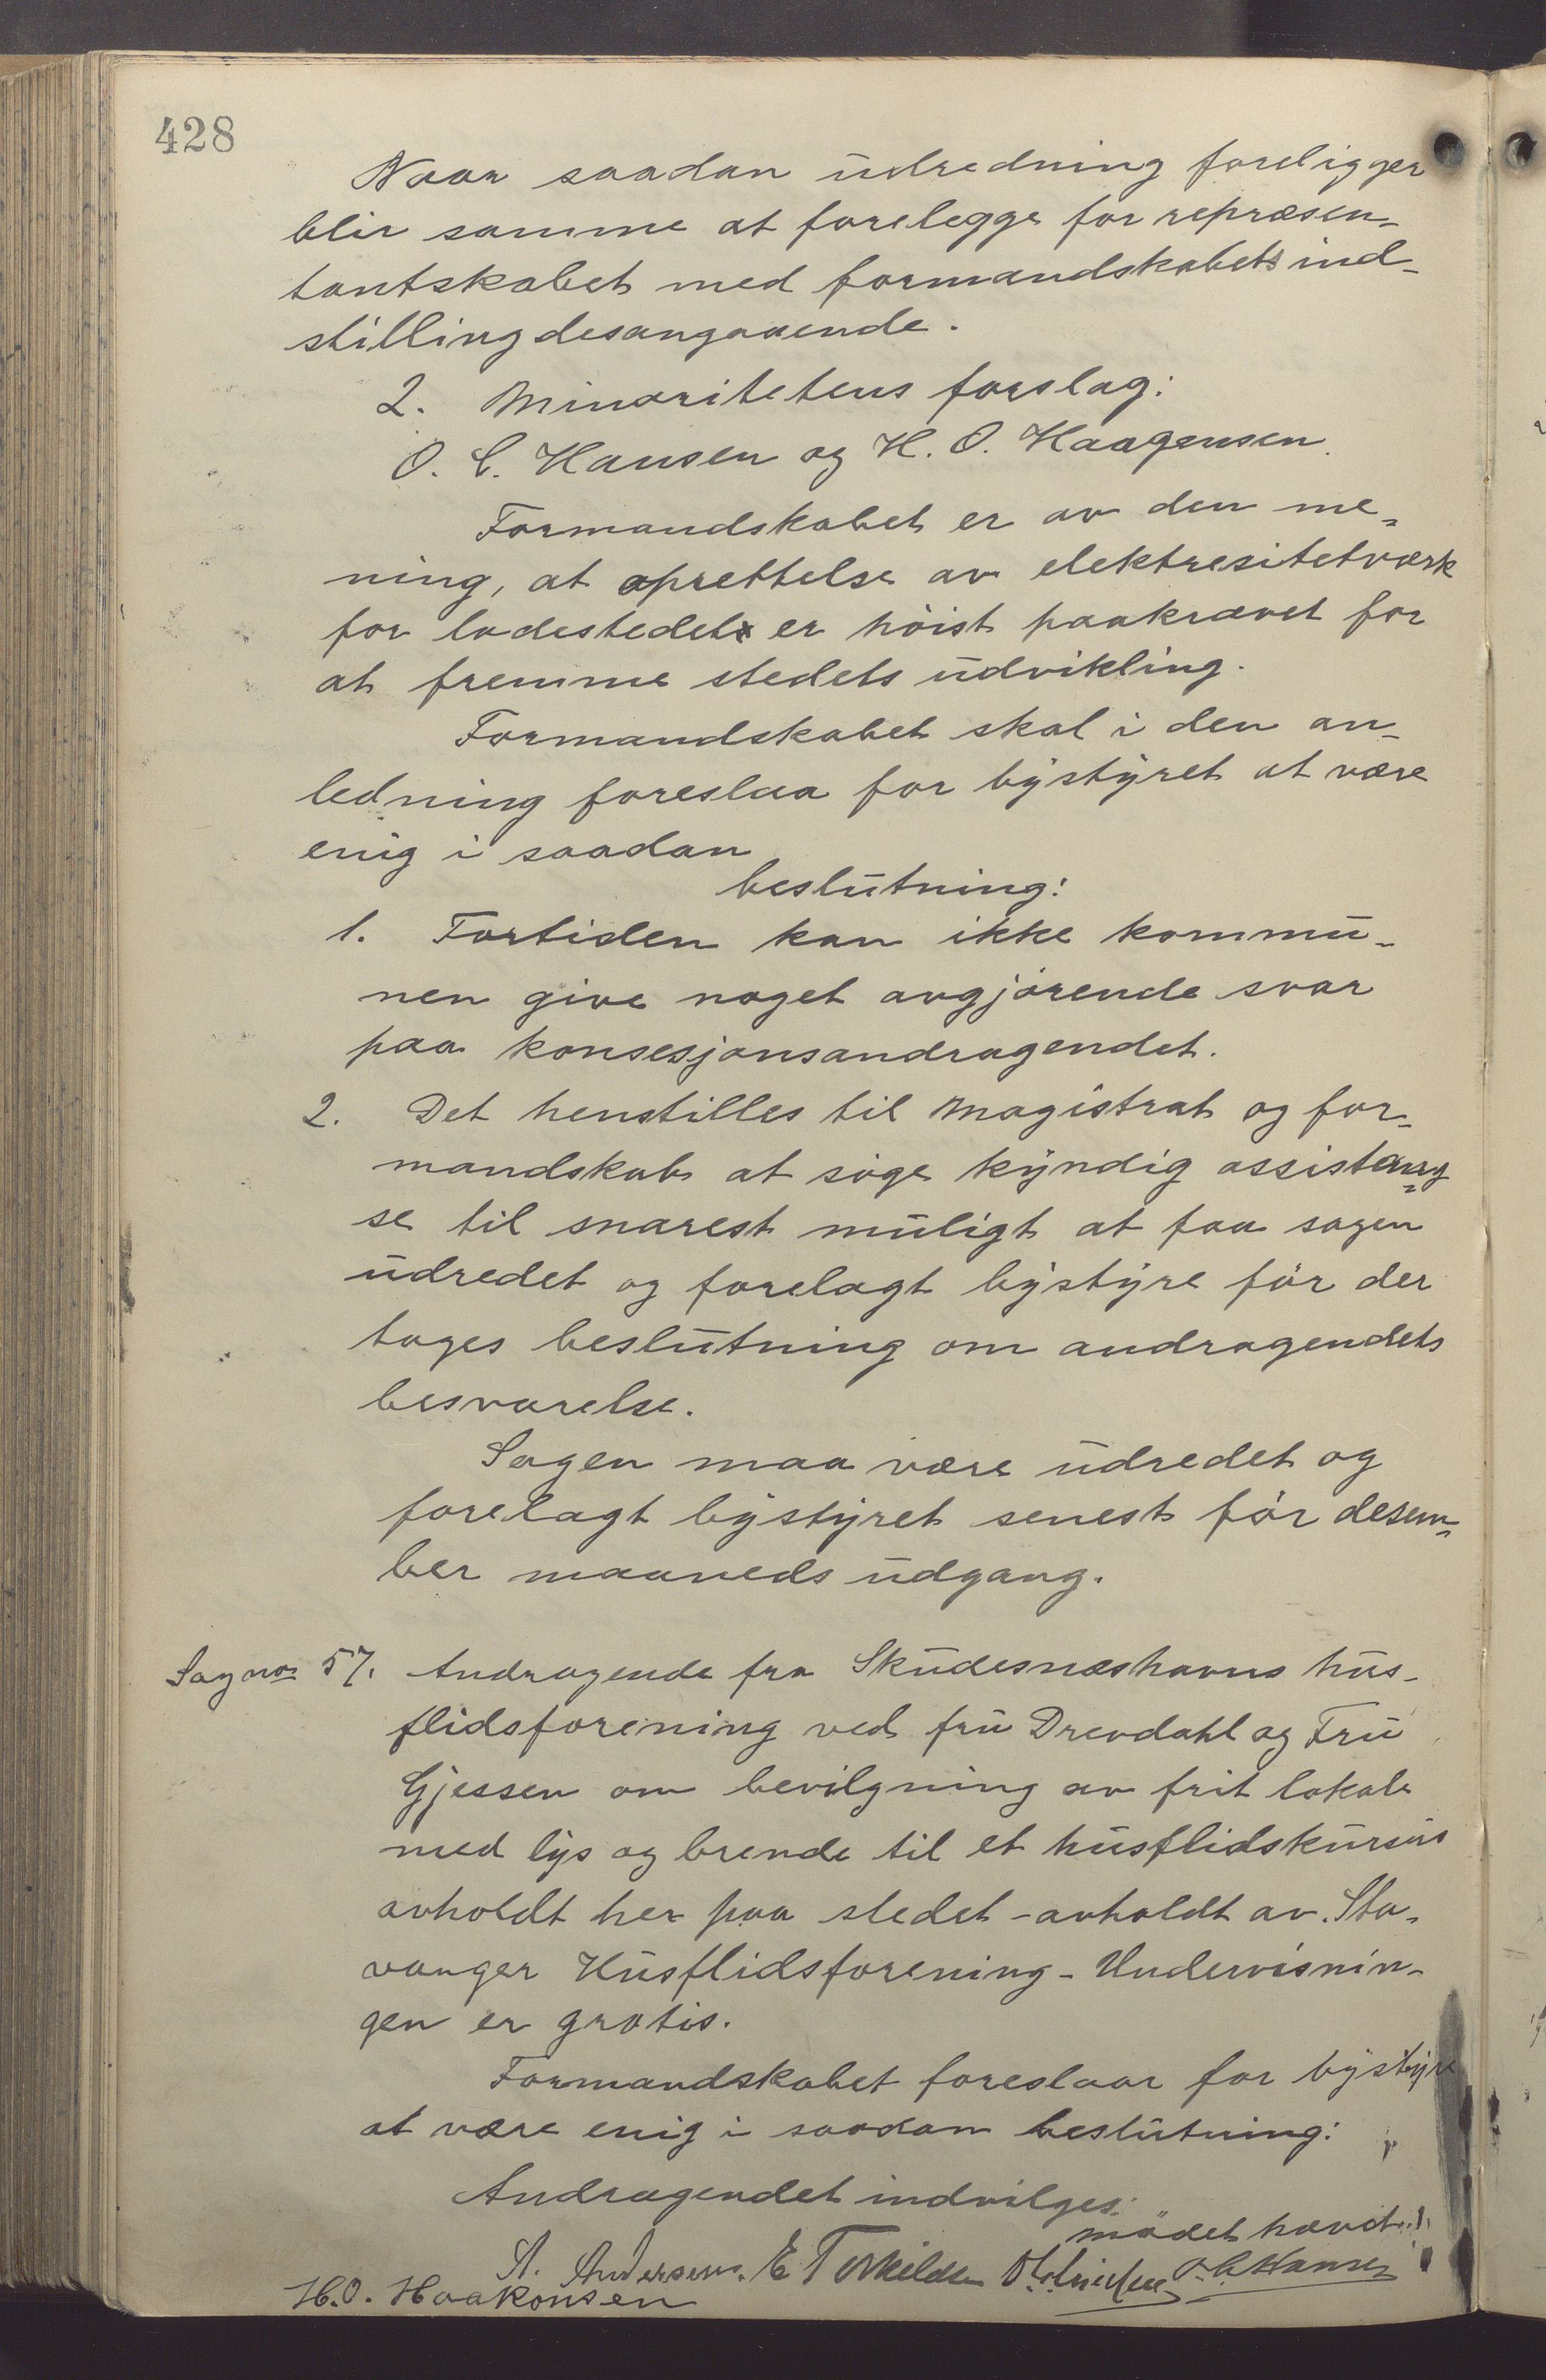 428
Naar saadan udredning foreligger
blir samme at forelegge for repræsen-
tantskabet med formandskabets ind-
stilling desangaaende.
2. Minoritetens forslag:
O. C. Hansen og H. O. Haagensen.
Formandskabet er av den me-
ning, at oprettelse av elektresitetværk
for ladestedet er høist paakrævet for
at fremme stedets udvikling.
Formandskabet skal i den an-
ledning foreslaa for bystyret at være
enig i saadan
beslutning:
1. Fortiden kan ikke kommu-
nen give noget avgjørende svar
paa konsesjonsandragendet.
2. Det henstilles til Magistrat og for-
mandskab at søge kyndig assistang-
se til snarest muligt at faa sagen
udredet og forelagt bystyre før der
tages beslutning om andragendets
besvarelse.
Sagen maa være udredet og
forelagt bystyret senest før desem-
ber maaneds udgang.
Sag no 57. Andragende fra Skudesnæshavns hus-
flidsforening ved fru Drevdahl og Fru
Gjessen om bevilgning av frit lokale
med lys og brende til et husflidskursus
avholdt her paa stedet - avholdt av Sta-
vanger Husflidsforening - Undervisnin-
gen er gratis.
Formandskabet foreslaar for bystyre
at være enig i saadan beslutning:
Andragendet indvilges.
mødet hævet
A. Andersen. E Torkildsen O. C. Hansen
H.O. Haakonsen